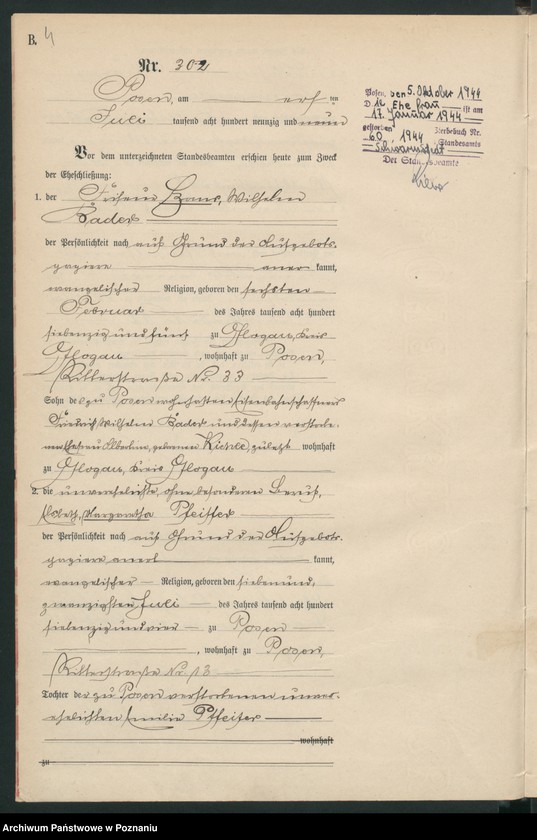 B. 4
Nr. 302
Posen, am elf ten
Juli tausend acht hundert neunzig und neun
Vor dem unterzeichneten Standesbeamten erschien heute zum Zweck
der Eheschließung:
1. der Friseur Hans, Wilhelm
Bader
der Persönlichkeit nach auf Grund des Aufgebots-
papiere aner kannt,
evangelischer Religion, geboren den sechsten
Februar des Jahres tausend acht hundert
siebenzig und fünf zu Glogau, Kreis
Glogau, wohnhaft zu Posen,
Ritterstraße No. 33
Sohn des zu Posen wohnhaften Eisenbahnschaffners
Friedrich Wilhelm Bader und dessen verstorbe-
nen Ehefrau Albertine, geborenen, zuletzt wohnhaft
zu Glogau, Kreis Glogau
2. die unverehelichte, ohne besonderen Beruf,
Margaretha Pfeiffer
der Persönlichkeit nach auf Grund des Aufgebots-
papiere anerk kannt,
evangelischer Religion, geboren den siebenund-
zwanzigsten Juli des Jahres tausend acht hundert
siebenzig und vier zu Posen
, wohnhaft zu Posen,
Ritterstraße No. 13
Tochter der zu Posen verstorbenen unver-
ehelichten Emilie Pfeifer
wohnhaft
zu
Posen, den 5. Oktober 1944
D ie Ehefrau ist am
17. Januar 1944
gestorben Sterbebuch Nr.
60 1944 Standesamts
Schwarzenfurt
Der Standesbeamte
Archiwum Państwowe w Poznaniu